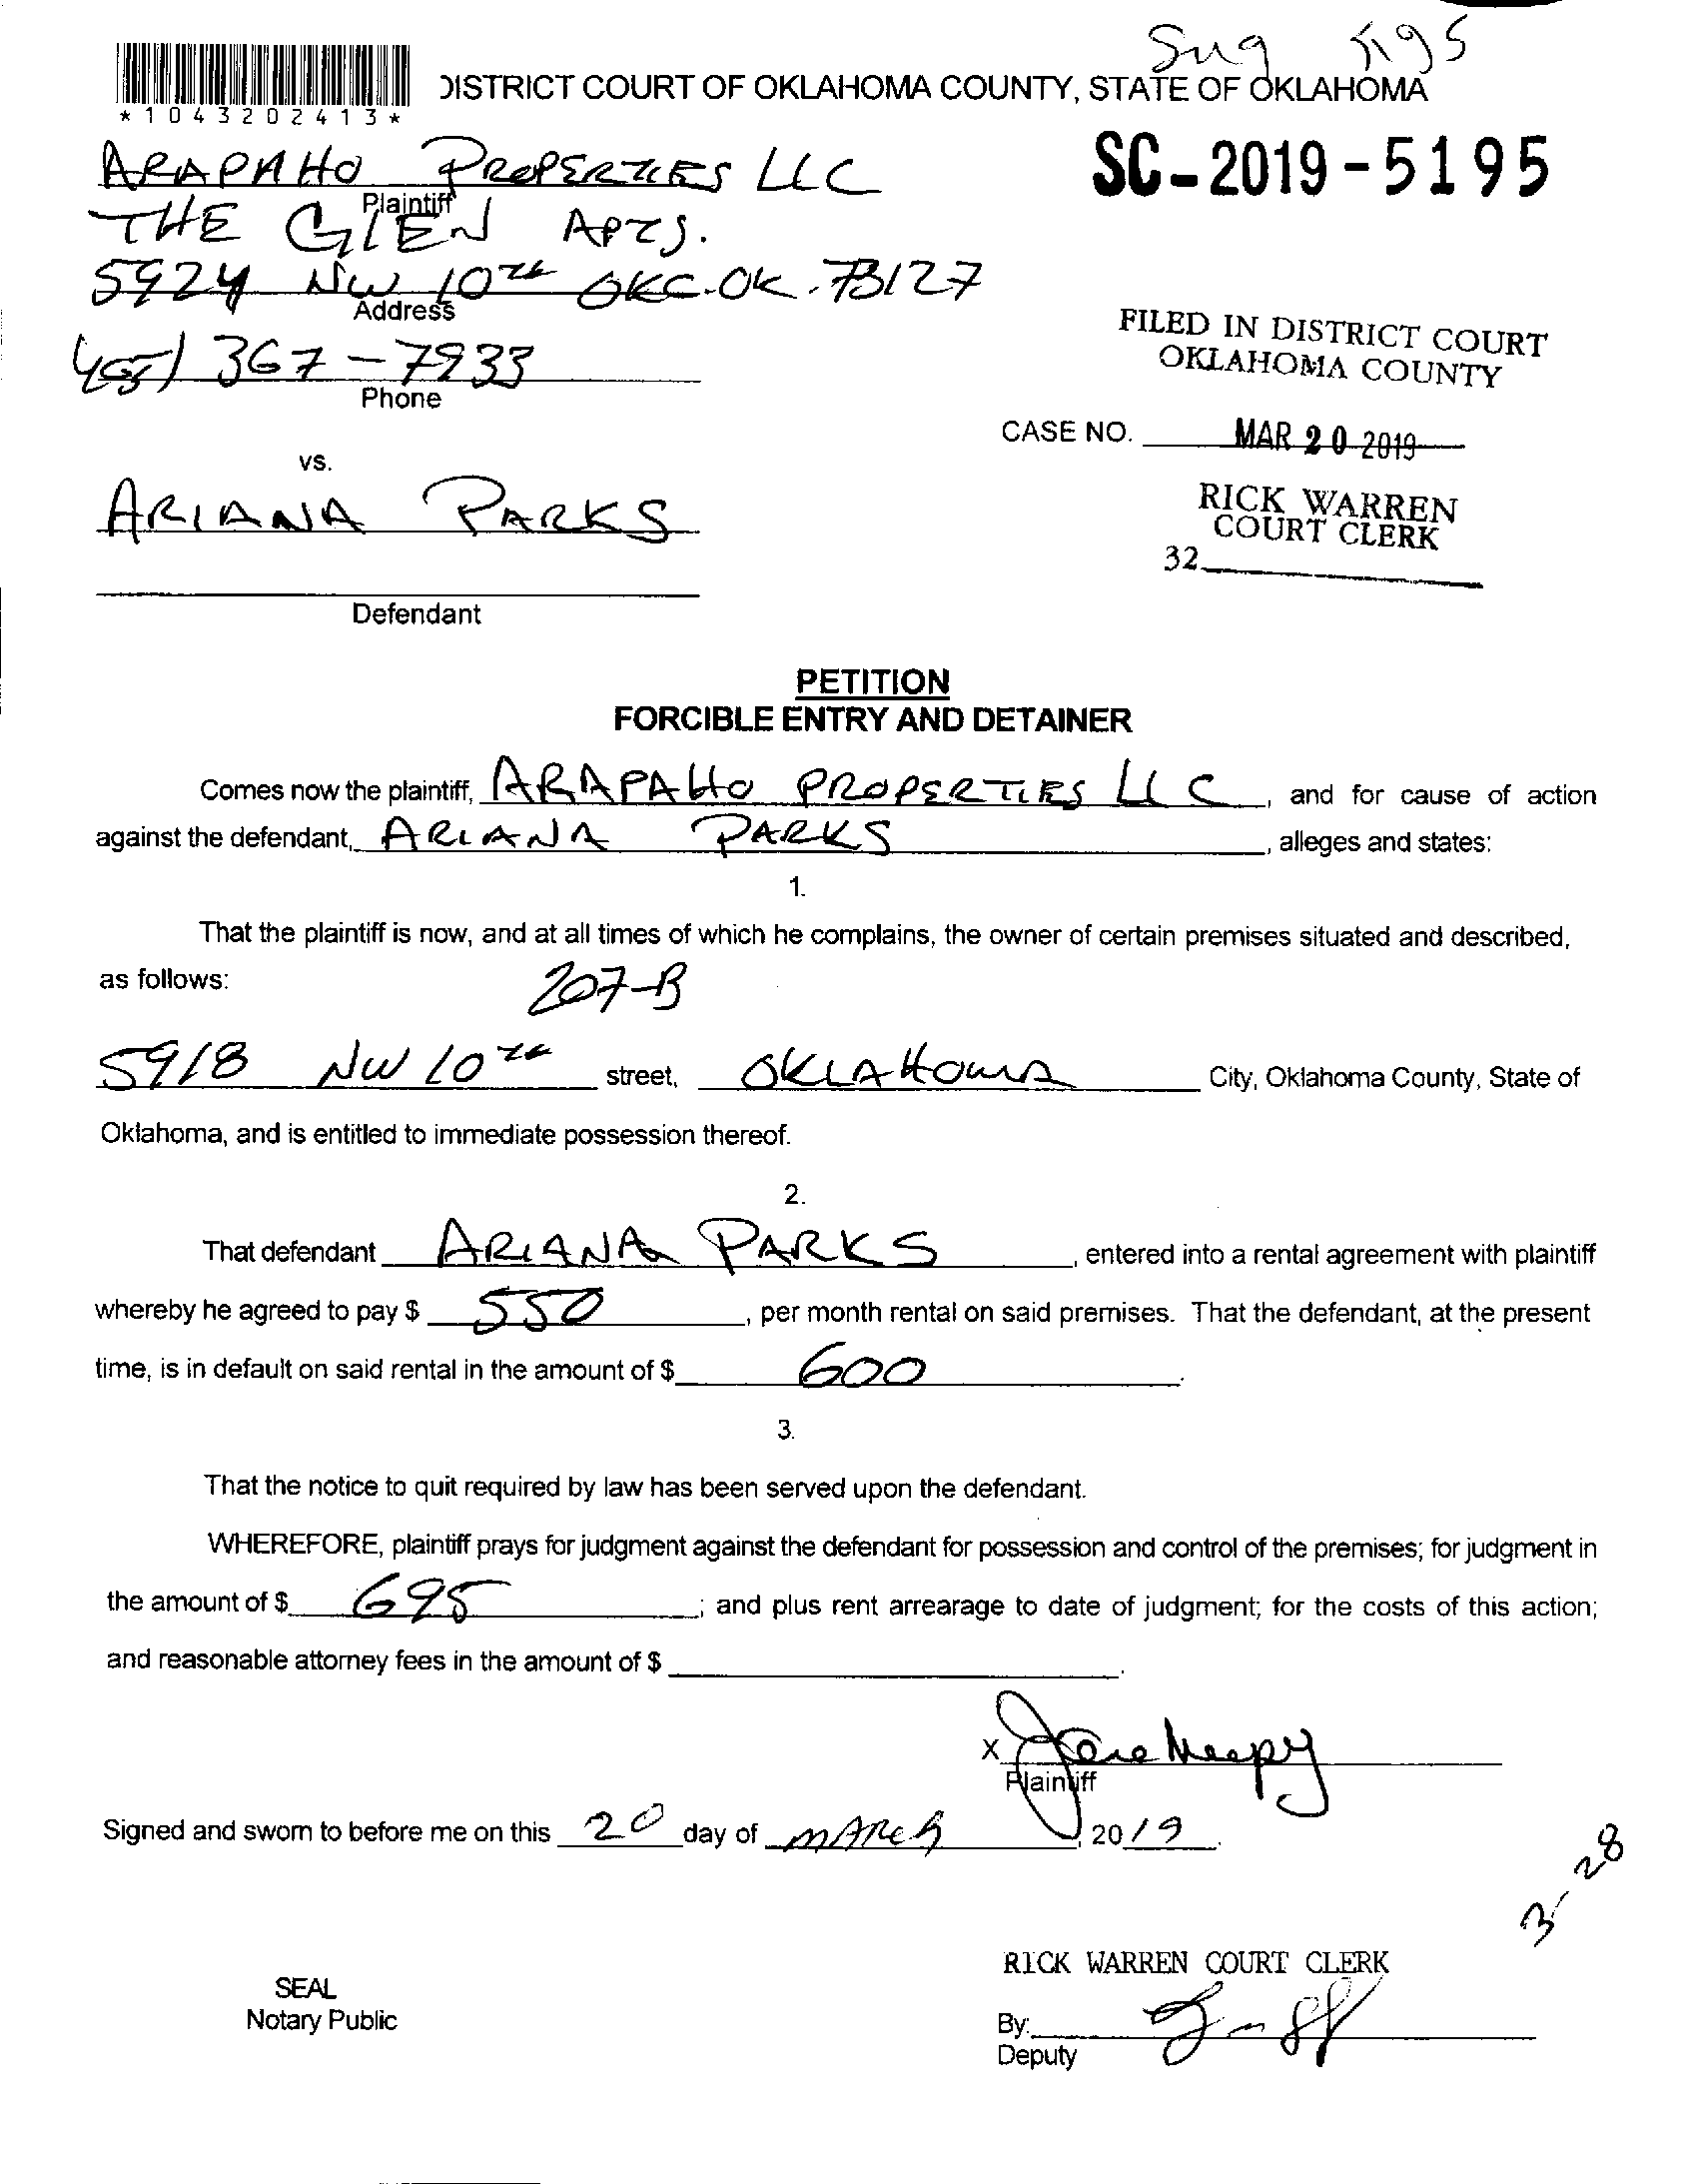 Sug 5195
DISTRICT COURT OF OKLAHOMA COUNTY, STATE OF OKLAHOMA
*1043202413*
ARAPAHO PROPERTIES LLC
SC-2019-5195
Plaintiff
THE GLEN APTS.
5924 NW 10th OKC.OK.73127
Address
FILED IN DISTRICT COURT
OKLAHOMA COUNTY
405) 367-7933
Phone
CASE NO. MAR 20 2019
vs.
ARIANA PARKS
RICK WARREN
COURT CLERK
32
Defendant
PETITION
FORCIBLE ENTRY AND DETAINER
Comes now the plaintiff, ARAPAHO PROPERTIES LLC, and for cause of action
against the defendant, ARIANA PARKS, alleges and states:
1.
That the plaintiff is now, and at all times of which he complains, the owner of certain premises situated and described,
as follows: 207-B
5918 NW 10th street, OKLAHOMA City, Oklahoma County, State of
Oklahoma, and is entitled to immediate possession thereof.
2.
That defendant ARIANA PARKS, entered into a rental agreement with plaintiff
whereby he agreed to pay $ 550, per month rental on said premises. That the defendant, at the present
time, is in default on said rental in the amount of $ 600.
3.
That the notice to quit required by law has been served upon the defendant.
WHEREFORE, plaintiff prays for judgment against the defendant for possession and control of the premises; for judgment in
the amount of $ 695; and plus rent arrearage to date of judgment; for the costs of this action;
and reasonable attorney fees in the amount of $ .
X
Plaintiff
Signed and sworn to before me on this 20 day of MARCH, 2019.
3-28
RICK WARREN COURT CLERK
SEAL
Notary Public
By:
Deputy